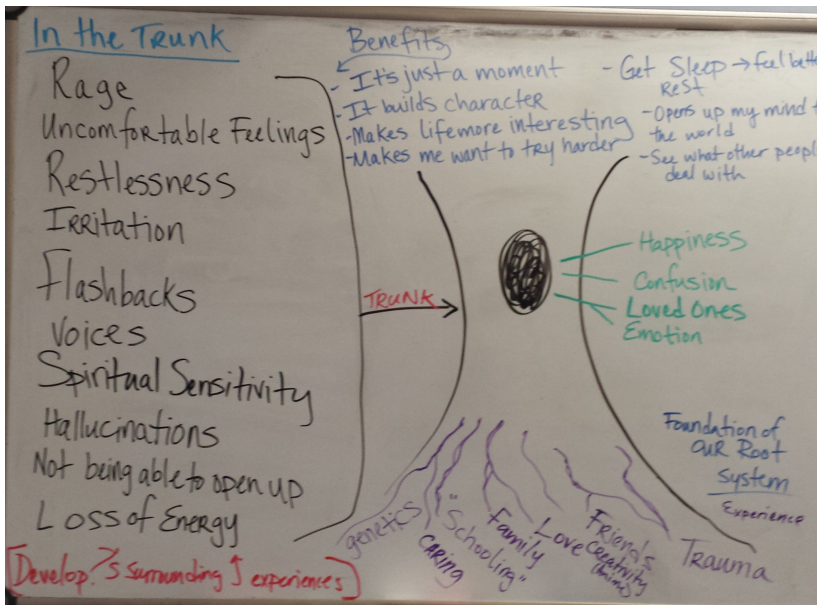 In the Trunk
Rage
Uncomfortable Feelings
Restlessness
Irritation
Flashbacks
Voices
Spiritual Sensitivity
Hallucinations
Not being able to open up
Loss of Energy
[Develop ?'s surrounding ↑ experiences]
Benefits
- It's just a moment
- It builds character
- Makes life more interesting
- Makes me want to try harder
- Get Sleep → feel
Rest
- Opens up my mind
the world
- See what other
deal with
TRUNK
Happiness
Confusion
Loved Ones
Emotion
Foundation of
our Root
System
Experience
genetics
CARING
"Schooling"
Family
Love
Friends
Creativity
Trauma